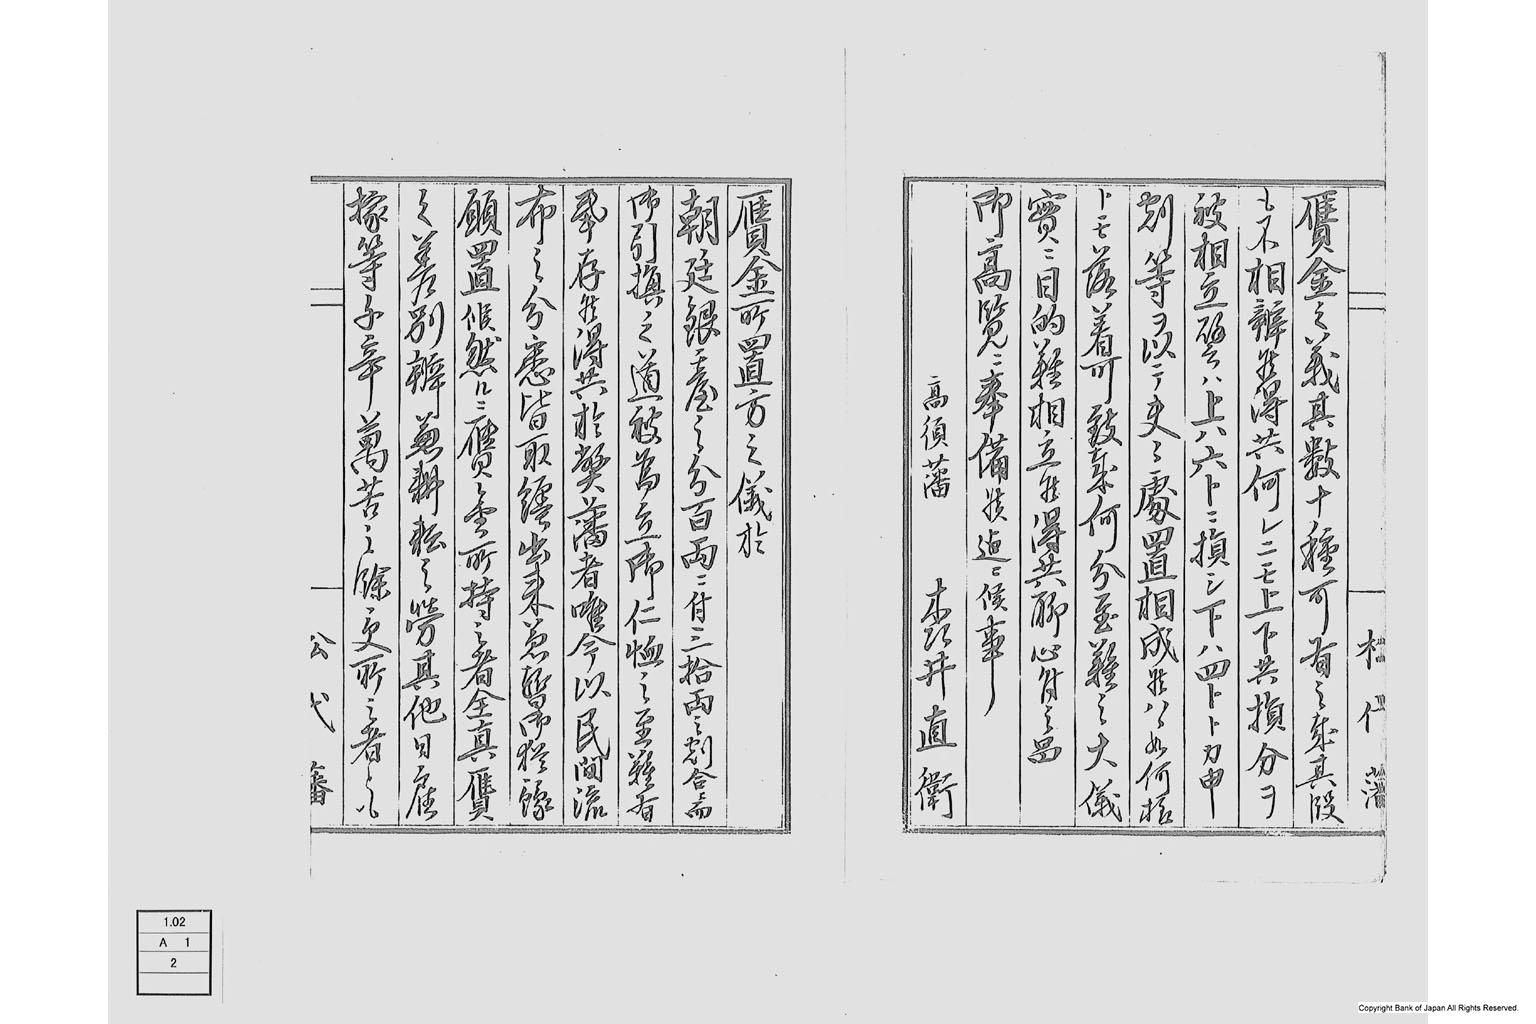 贋金之義其数十種可有之哉其段
も不相辨候得共何レニモ上下共損分ヲ
被相立譬ハ上ハ六トニ損シ下ハ四トトカ申
割等ヲ以テ夫々處置相成候ハヽ如何様
トモ落着可致哉何分至難之大儀
實ニ目的難相立候得共聊心附之昌
御高覧ニ奉備候迠ニ候事
高須藩
直衛
贋金所置方之儀於
朝廷銀臺之分百両ニ付三拾両之割合ニ而
御引換之道被為立御仁恤之至難有
奉存候得共於弊藩者唯今以民間流
布之分悉皆取纒出来兼暫御猶豫
願置候然ルニ贋金所持之者全真贋
之差別辨兼耕耘之勞其他日雇
稼等千辛萬苦之餘受所之者とも
松代藩
藩
1.02
A 1
2
Copyright Bank of Japan All Rights Reserved.